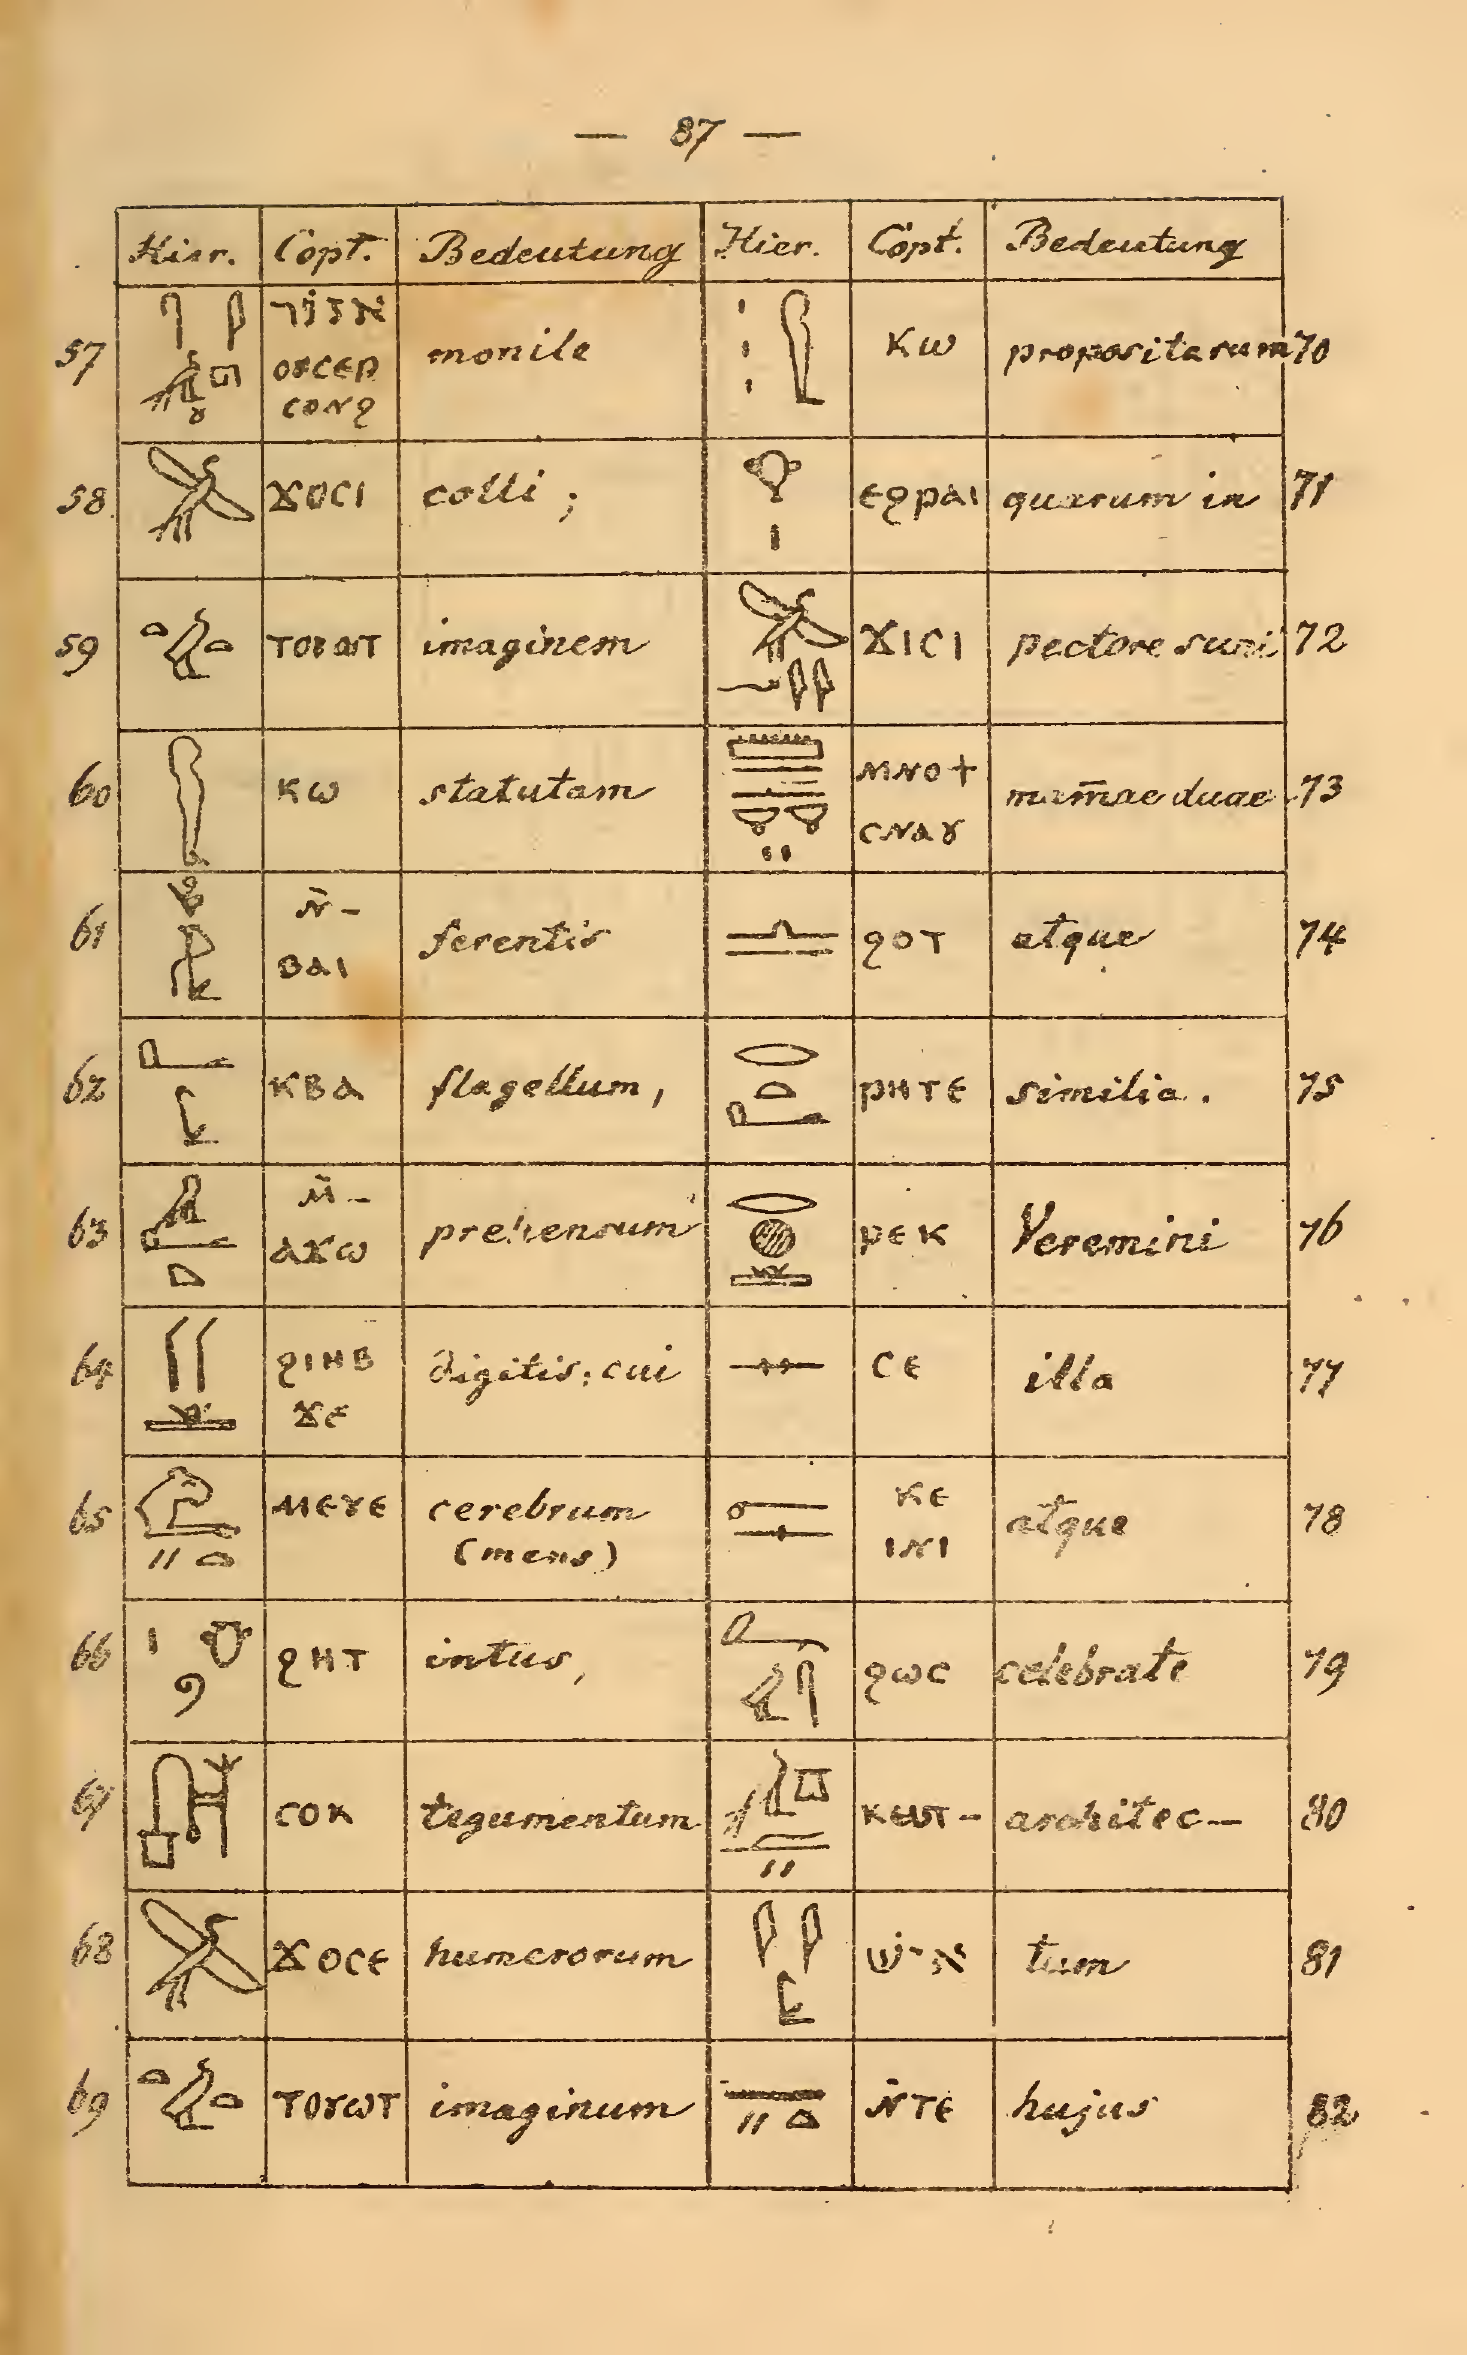 — 87 —
Hier. Copt. Bedeutung Hier. Copt. Bedeutung
57 אזור monile ⲕⲱ propositarum 70
ⲟⲩⲥⲉⲣ
ⲥⲟⲛϩ
58 ϫⲟⲥⲓ colli ; ⲉϩⲣⲁⲓ quarum in 71
59 ⲧⲟⲩⲱⲧ imaginem ϫⲓⲥⲓ pectore sunt 72
60 ⲕⲱ statutam ⲙⲛⲟϯ mam̄ae duae 73
ⲥⲛⲁⲩ
61 ⲛ̄- ferentis ϩⲟⲧ atque 74
ⲃⲁⲓ
62 ⲕⲃⲁ flagellum, ⲣⲏⲧⲉ similia. 75
63 ⲙ̄- prehensum ⲣⲉⲕ Veremini 76
ⲁϫⲱ
64 ϩⲓⲏⲃ digitis; cui ⲥⲉ illa 77
ϫⲉ
65 ⲙⲉⲩⲉ cerebrum ⲕⲉ atque 78
(mens) ⲓⲛⲓ
66 ϩⲏⲧ intus, ϩⲱⲥ celebrate 79
67 ⲥⲟⲕ tegumentum ⲕⲉⲱⲧ- architec- 80
68 ϫⲟⲥⲉ humerorum אִישׁ tum 81
69 ⲧⲟⲩⲱⲧ imaginum ⲛ̄ⲧⲉ hujus 82